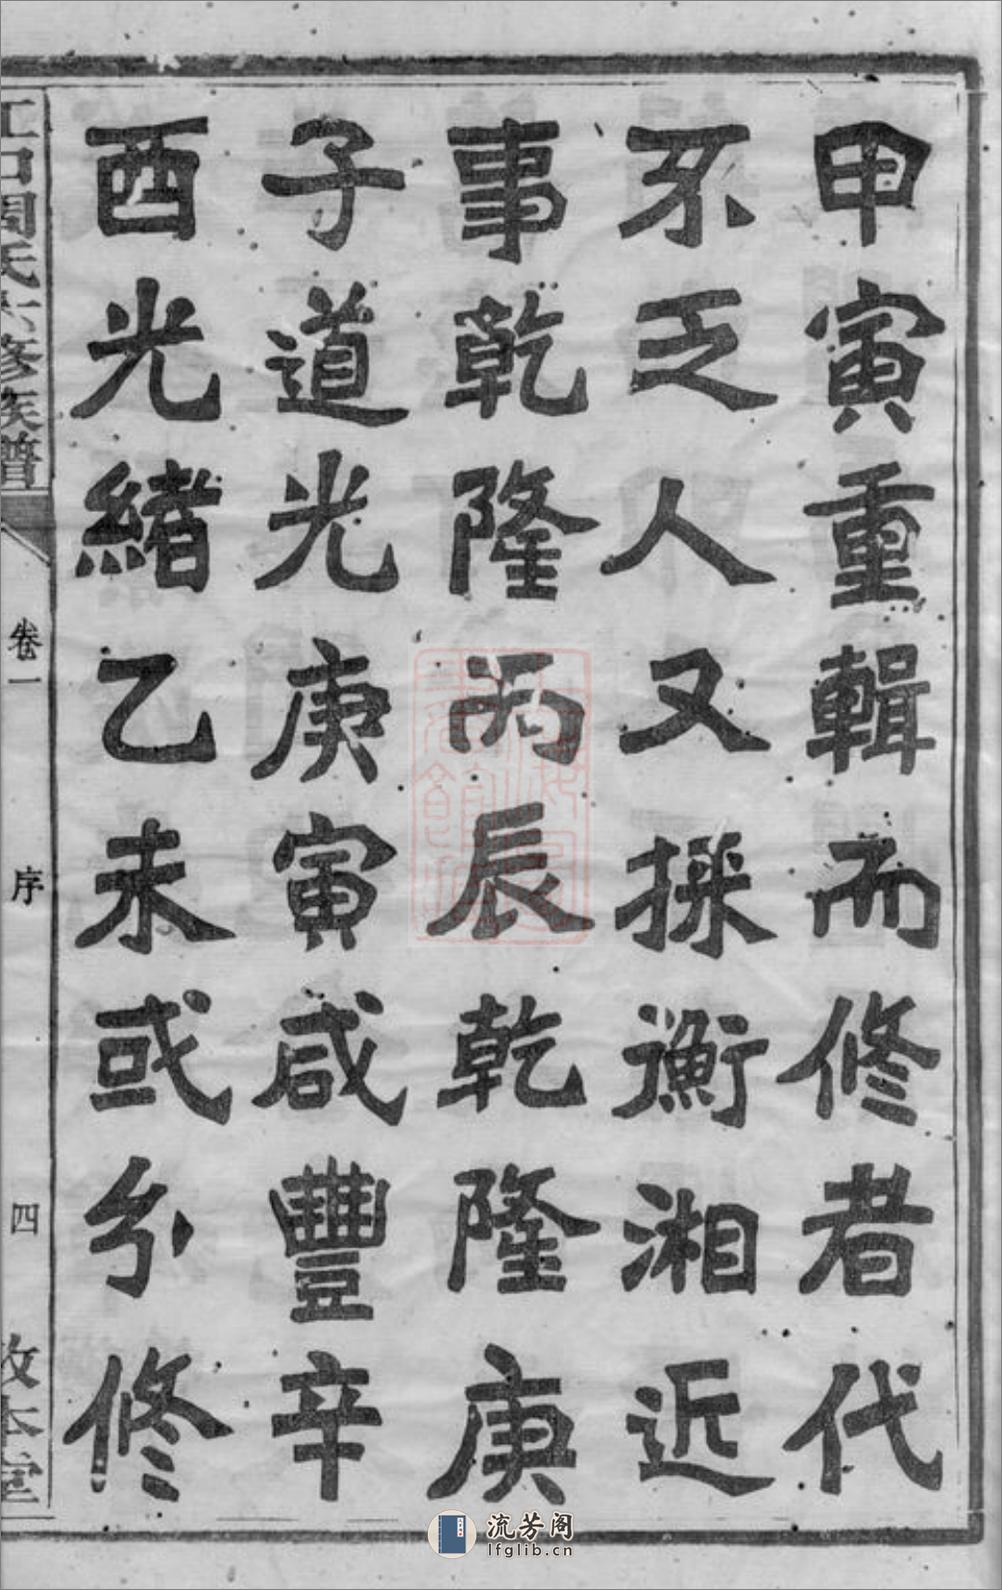 甲寅重輯而修者代
不乏人又採衡湘近
事乾隆丙辰乾隆庚
子道光庚寅咸豐辛
酉光緒乙未或分修
周氏六修族譜
卷一
序
四
敦本堂
流芳阁
lfglib.cn